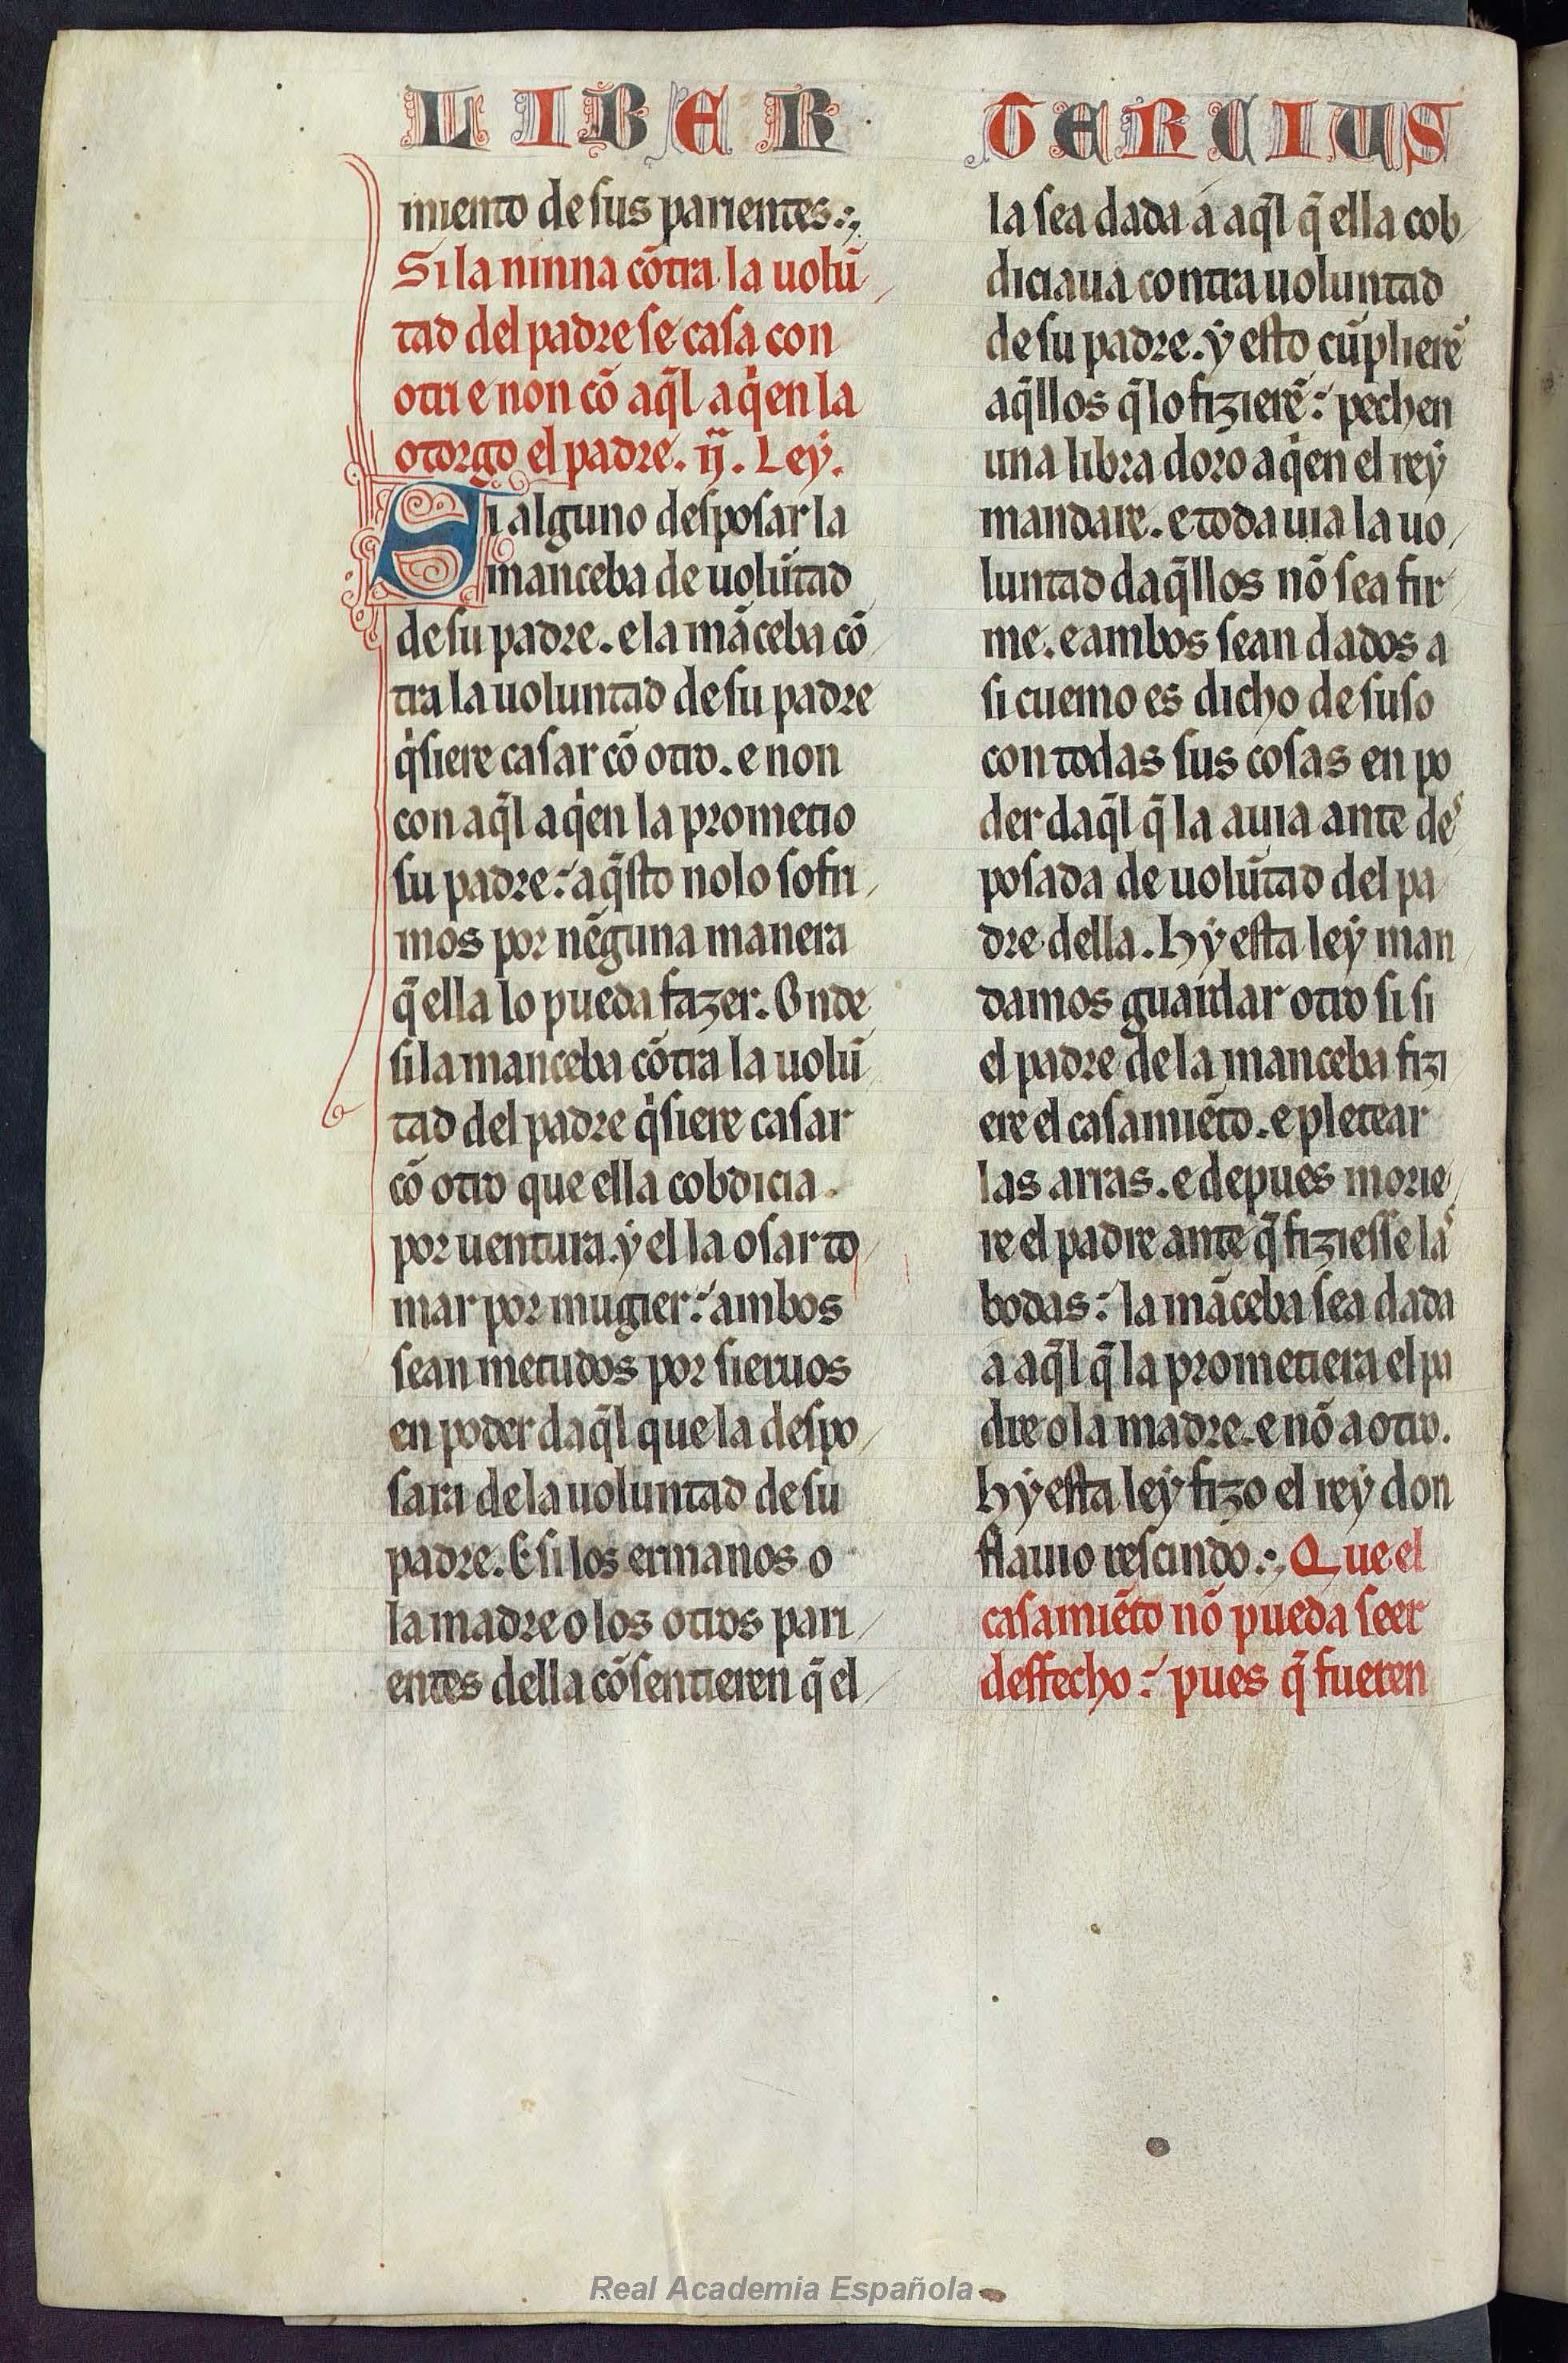 LIBER
miento de sus parientes.
Si la ninna cõtra la uolũ
tad del padre se casa con
otri e non cõ aq̃l a qͥen la
otorgo el padre. ij. Ley.
Si alguno desposar la
manceba de uolũtad
de su padre. e la mãceba cõ
tra la uoluntad de su padre
qͥsiere casar cõ otro. e non
con aq̃l a qͥen la prometio
su padre: aq̃sto no lo sofri
mos por nẽguna manera
q̃ ella lo pueda fazer. Onde
si la manceba cõtra la uolũ
tad del padre qͥsiere casar
cõ otro que ella cobdicia.
por uentura. ẏ el la osar to
mar por mugier: ambos
sean metudos por sieruos
en poder daq̃l que la despo
sara de la uoluntad de su
padre. E si los ermanos o
la madre o los otros pari
entes della cõsentieren q̃ el
TERCIUS
la sea dada a aq̃l q̃ ella cob
diciaua contra uoluntad
de su padre. ẏ esto cũplierẽ
aq̃llos q̃ lo fizierẽ: pechen
una libra doro a qͥen el reẏ
mandare. e toda uia la uo
luntad daq̃llos nõ sea fir
me. e ambos sean dados a
si cuemo es dicho de suso
con todas sus cosas en po
der daq̃l q̃ la auia ante deˢ
posada de uolũtad del pa
dre della. Hẏ esta leẏ man
damos guardar otro si si
el padre de la manceba fizi
ere el casamiẽto. e pletear
las arras. e depues morie
re el padre ante q̃ fiziesse laˢ
bodas: la mãceba sea dada
a aq̃l q̃ la prometiera el pa
dre o la madre. e nõ a otro.
Hẏ esta leẏ fizo el reẏ don
flauio rescindo. Que el
casamiẽto nõ pueda seer
deffecho: pues q̃ fueren
Real Academia Española